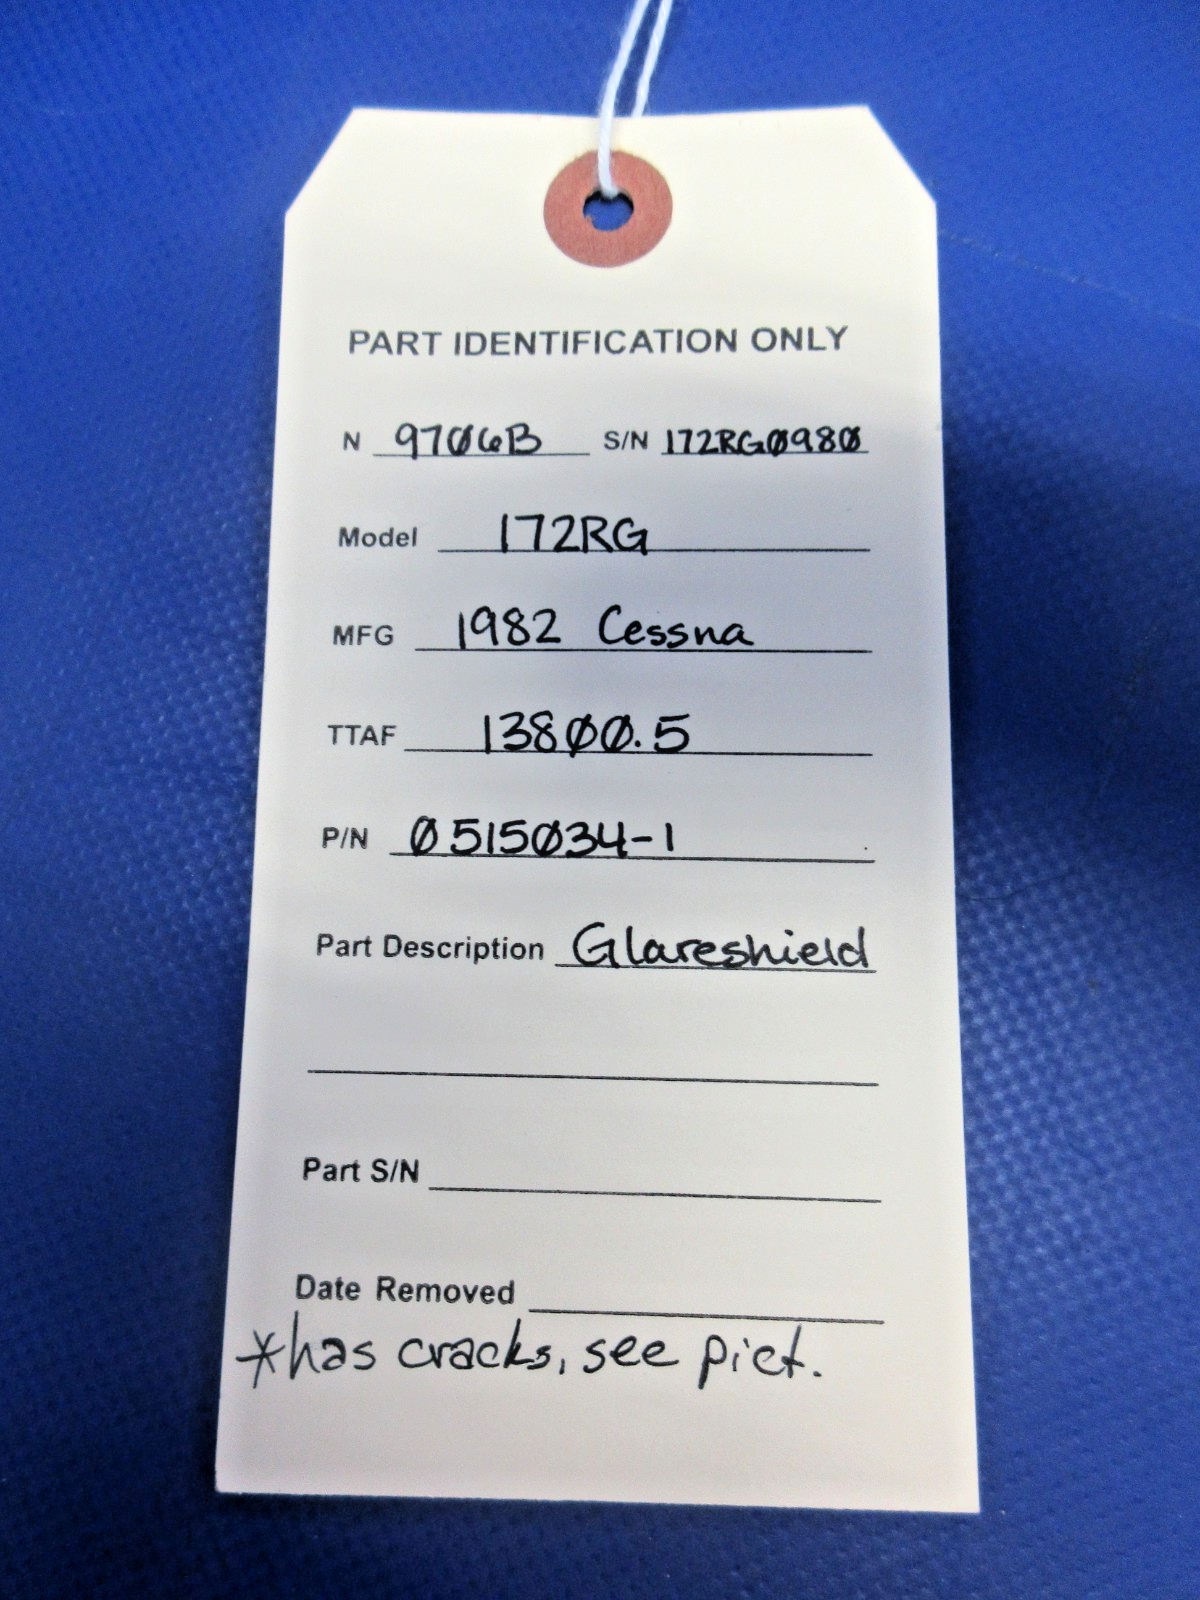 PART IDENTIFICATION ONLY
N 9706B S/N 172RG0980
Model 172RG
MFG 1982 Cessna
TTAF 13800.5
P/N 0515034-1
Part Description Glareshield
Part S/N
Date Removed
*has cracks, see pict.